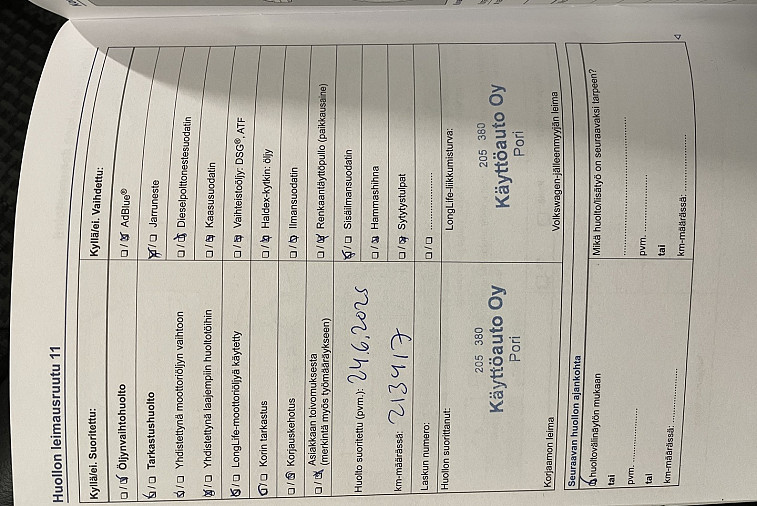 Huollon leimausruutu 11
Kyllä/ei. Suoritettu:
☐/☒ Öljynvaihtohuolto
☒/☐ Tarkastushuolto
☒/☐ Yhdistettynä moottoriöljyn vaihtoon
☒/☐ Yhdistettynä laajempiin huoltotöihin
☒/☐ LongLife-moottoriöljyä käytetty
☒/☐ Korin tarkastus
☐/☒ Korjauskehotus
☐/☒ Asiakkaan toivomuksesta
(merkintä myös työmääräykseen)
Huolto suoritettu (pvm.): 24.6.2025
km-määrässä: 213417
Laskun numero:
Huollon suorittanut:
205 380
Käyttöauto Oy
Pori
Korjaamon leima
Kyllä/ei. Vaihdettu:
☐/☒ AdBlue®
☒/☐ Jarruneste
☐/☒ Dieselpolttonestesuodatin
☐/☒ Kaasusuodatin
☐/☒ Vaihteistoöljy: DSG®, ATF
☐/☒ Haldex-kytkin: öljy
☐/☒ Ilmansuodatin
☐/☒ Renkaantäyttöpullo (paikkausaine)
☒/☐ Sisäilmansuodatin
☐/☒ Hammashihna
☐/☒ Sytytystulpat
☐/☐ ................
LongLife-liikkumisturva:
205 380
Käyttöauto Oy
Pori
Volkswagen-jälleenmyyjän leima
Seuraavan huollon ajankohta
☒ huoltovälinäytön mukaan
tai
pvm. ................
tai
km-määrässä: ................
Mikä huolto/lisätyö on seuraavaksi tarpeen?
................
pvm. ................
tai
km-määrässä: ................